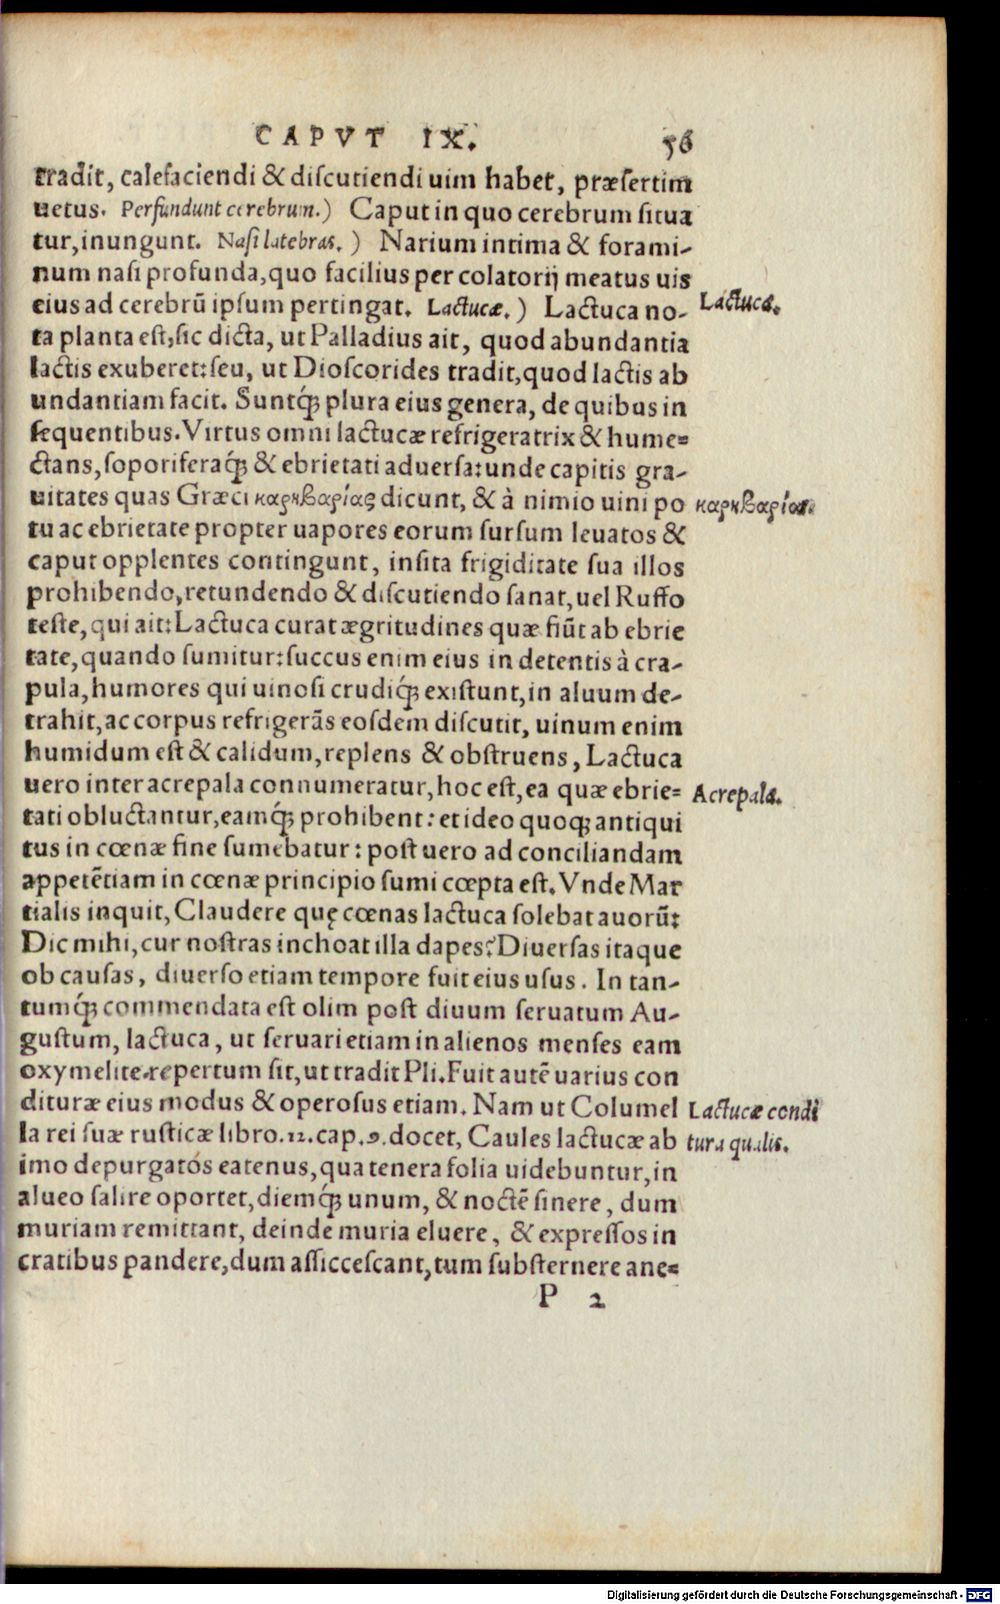 CAPVT IX. 56
tradit, calefaciendi & discutiendi uim habet, præsertim
uetus. Perfundunt cerebrum.) Caput in quo cerebrum situa
tur, inungunt. Nasi latebras.) Narium intima & forami-
num nasi profunda, quo facilius per colatorij meatus uis
eius ad cerebrũ ipsum pertingat. Lactucæ.) Lactuca no-
Lactuca.
ta planta est, sic dicta, ut Palladius ait, quod abundantia
lactis exuberet: seu, ut Dioscorides tradit, quod lactis ab
undantiam facit. Suntq́; plura eius genera, de quibus in
sequentibus. Virtus omni lactucæ refrigeratrix & hume=
ctans, soporiferaq́; & ebrietati aduersa: unde capitis gra-
uitates quas Græci καρηβαρίας dicunt, & à nimio uini po
καρηβαρίαι
tu ac ebrietate propter uapores eorum sursum leuatos &
caput opplentes contingunt, insita frigiditate sua illos
prohibendo, retundendo & discutiendo sanat, uel Ruffo
teste, qui ait: Lactuca curat ægritudines quæ fiũt ab ebrie
tate, quando sumitur: succus enim eius in detentis à cra-
pula, humores qui uinosi crudiq́; existunt, in aluum de-
trahit, ac corpus refrigerãs eosdem discutit, uinum enim
humidum est & calidum, replens & obstruens, Lactuca
uero inter acrepala connumeratur, hoc est, ea quæ ebrie=
Acrepala.
tati obluctantur, eamq́; prohibent: et ideo quoq; antiqui
tus in cœnæ fine sumebatur: post uero ad conciliandam
appetẽtiam in cœnæ principio sumi cœpta est. Vnde Mar
tialis inquit, Claudere quę cœnas lactuca solebat auorũ:
Dic mihi, cur nostras inchoat illa dapes? Diuersas itaque
ob causas, diuerso etiam tempore fuit eius usus. In tan-
tumq́; commendata est olim post diuum seruatum Au-
gustum, lactuca, ut seruari etiam in alienos menses eam
oxymelite repertum sit, ut tradit Pli. Fuit autẽ uarius con
dituræ eius modus & operosus etiam. Nam ut Columel
Lactucæ condi
la rei suæ rusticæ libro. 12. cap. 9. docet, Caules lactucæ ab
tura qualis.
imo depurgatos eatenus, qua tenera folia uidebuntur, in
alueo salire oportet, diemq́; unum, & noctẽ sinere, dum
muriam remittant, deinde muria eluere, & expressos in
cratibus pandere, dum assiccescant, tum substernere ane=
P 2
Digitalisierung gefördert durch die Deutsche Forschungsgemeinschaft - DFG